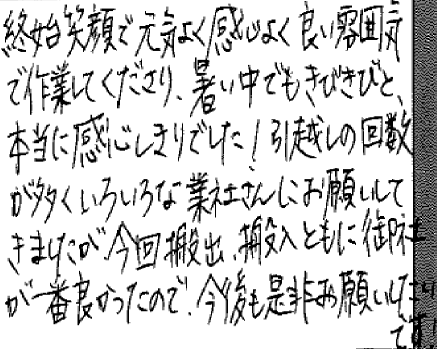 終始笑顔で元気よく感じよく良い雰囲気
で作業してくださり、暑い中でもきびきびと、
本当に感心しきりでした！引越しの回数
が多くいろいろな業社さんにお願いして
きましたが今回搬出、搬入ともに御社
が一番良かったので、今後も是非お願いしたい
です。